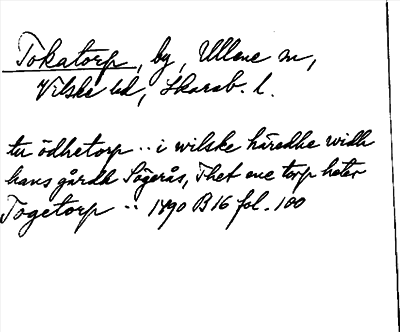 Tokatorp, by, Ullene sn,
Vilske hd, Skarab. l.
tu ödhetorp .. i wilske häredhe widh
hans gårdh Sögerås, Thet ene torp heter
Togetorp .. 1490 B16 fol. 100